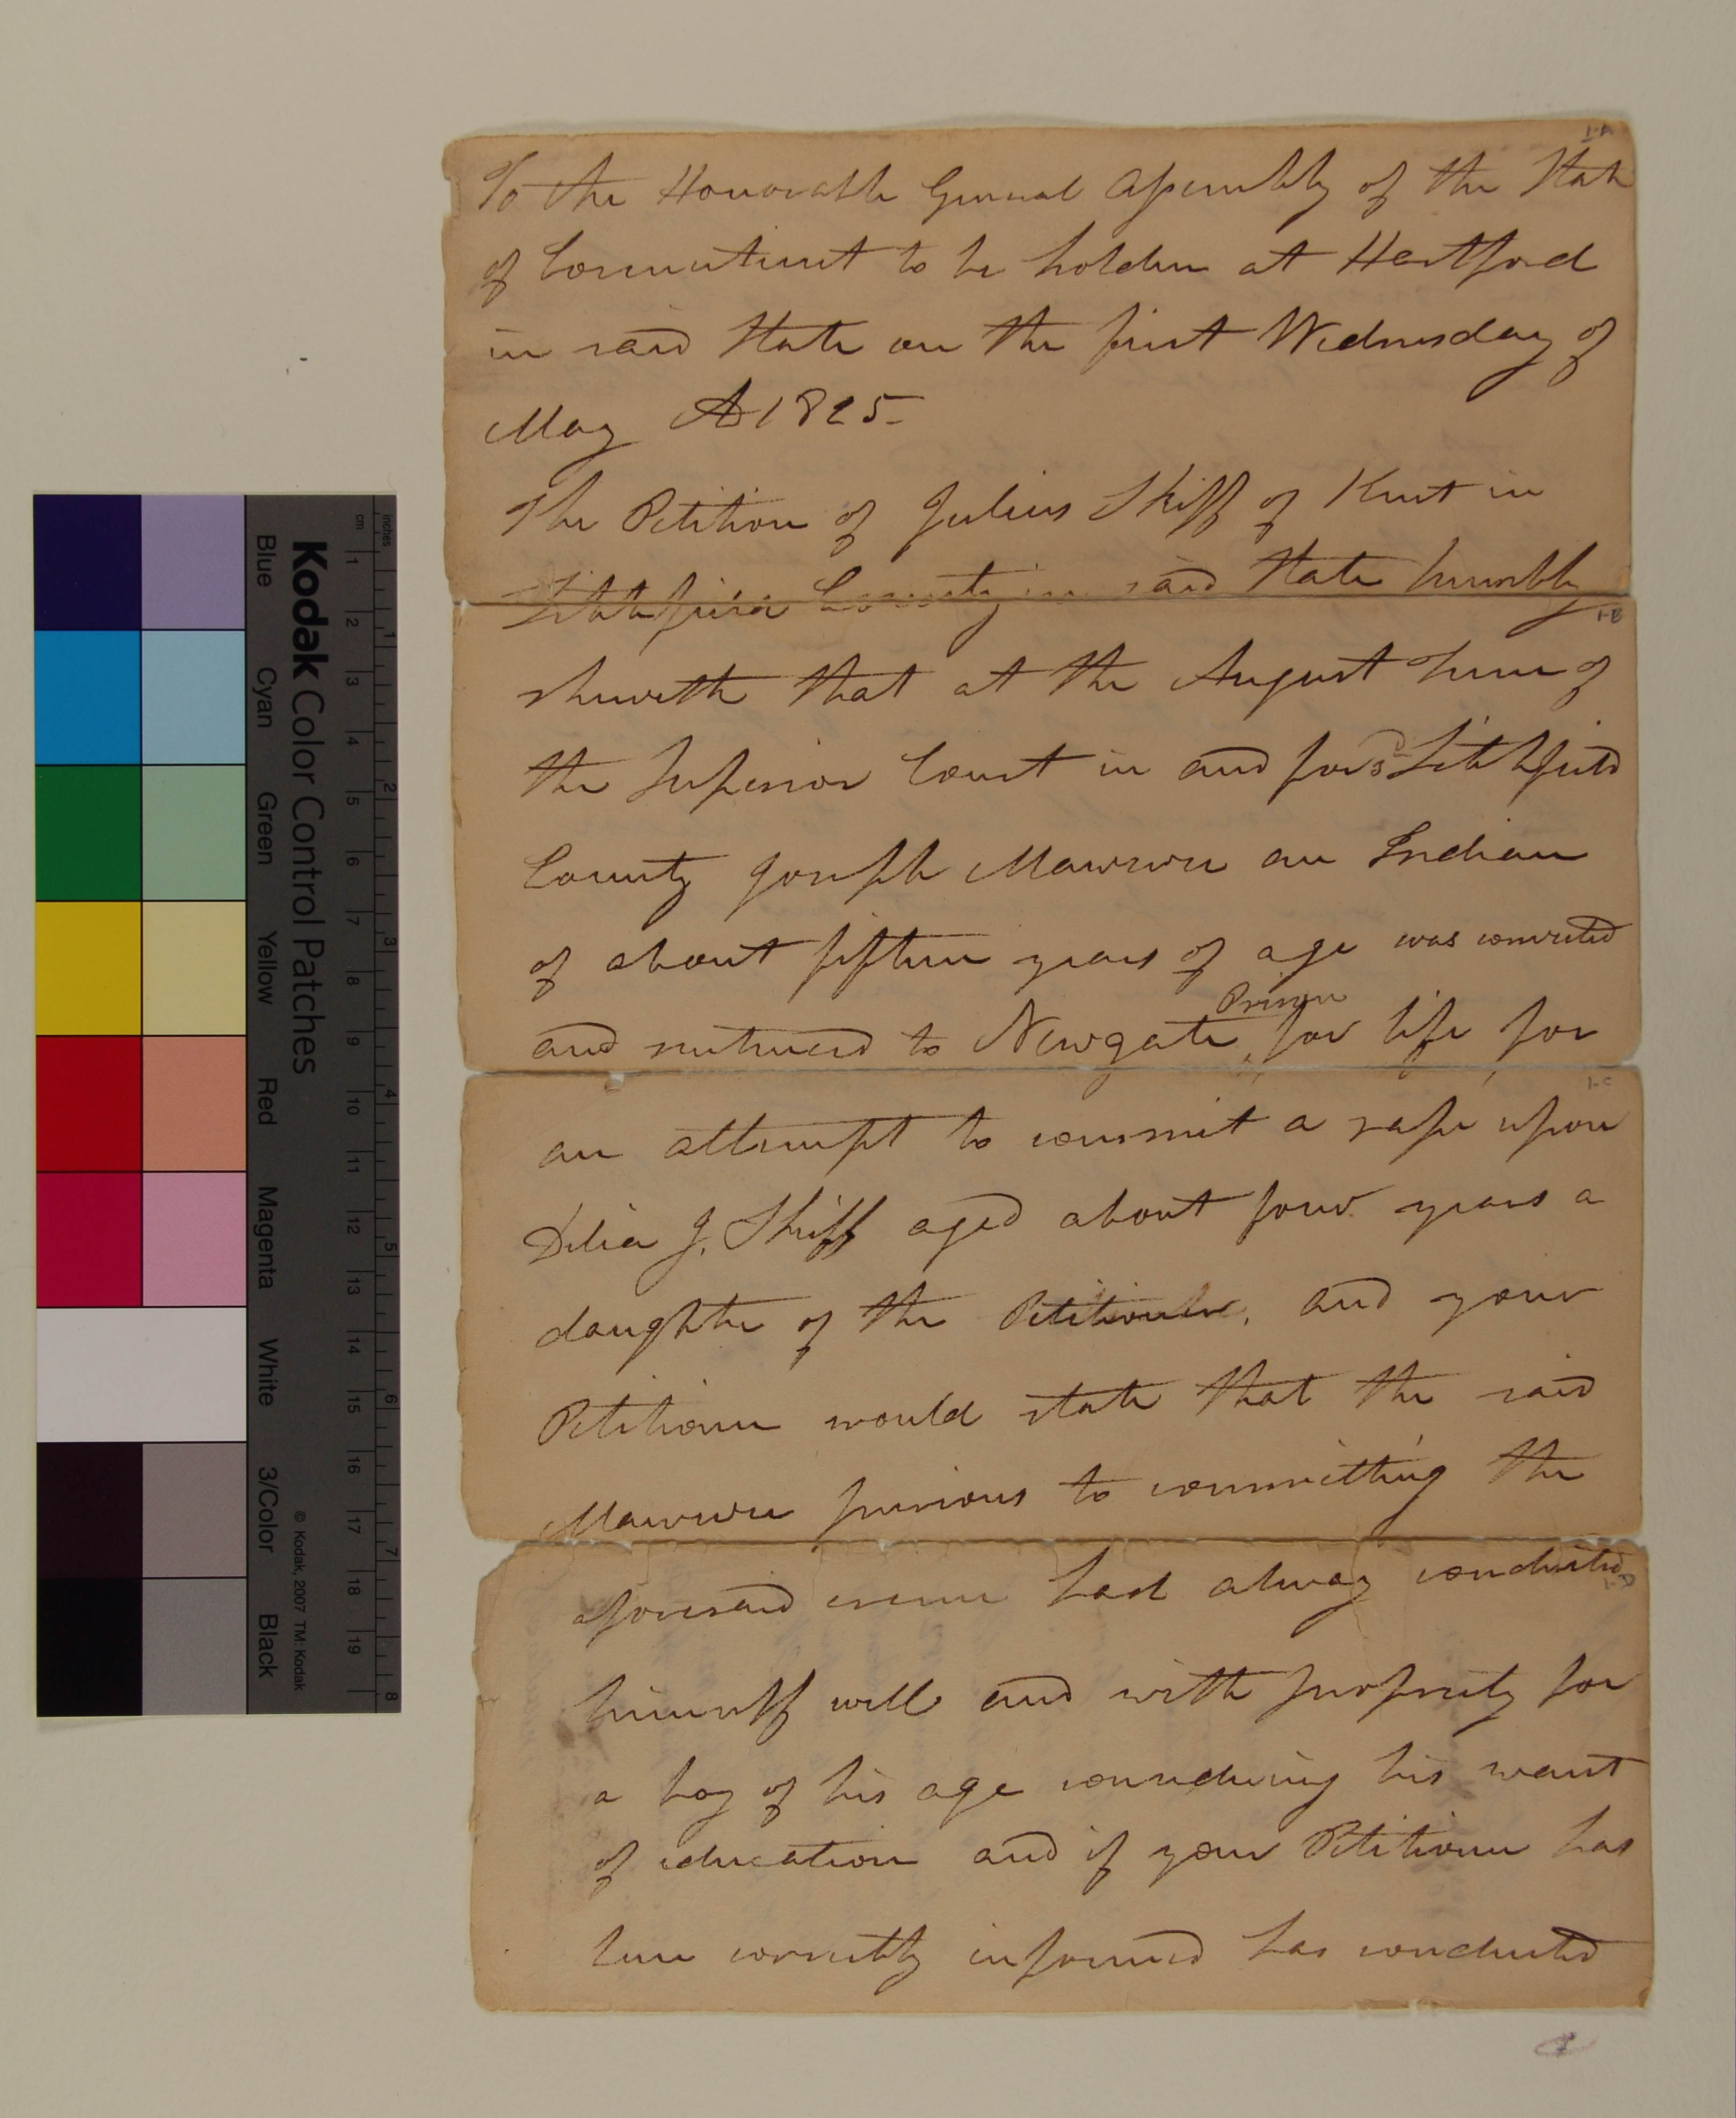 1-A
To the Honorable General Assembly of the State
of Connecticut to be holden at Hartford
in said State on the first Wednesday of
May AD 1825
The Petition of Julius Skiff of Kent in
Litchfield County in said State humbly
1-B
sheweth that at the August Term of
the Superior Court in and for sd Litchfield
County Joseph Mawwee an Indian
of about fifteen years of age was convicted
and sentenced to Newgate Prison for life for
1-C
an attempt to commit a rape upon
Delia J. Skiff aged about four years a
daughter of the Petitioner, and your
Petitioner would state that the said
Mawwee previous to committing the
1-D
aforesaid crime had alway conducted
himself well and with propriety for
a boy of his age considering his want
of education and if your Petitioner has
been correctly informed has conducted
Kodak Color Control Patches
Blue Cyan Green Yellow Red Magenta White 3/Color Black
© Kodak, 2007 TM: Kodak
inches 1 2 3 4 5 6 7 8
cm 1 2 3 4 5 6 7 8 9 10 11 12 13 14 15 16 17 18 19